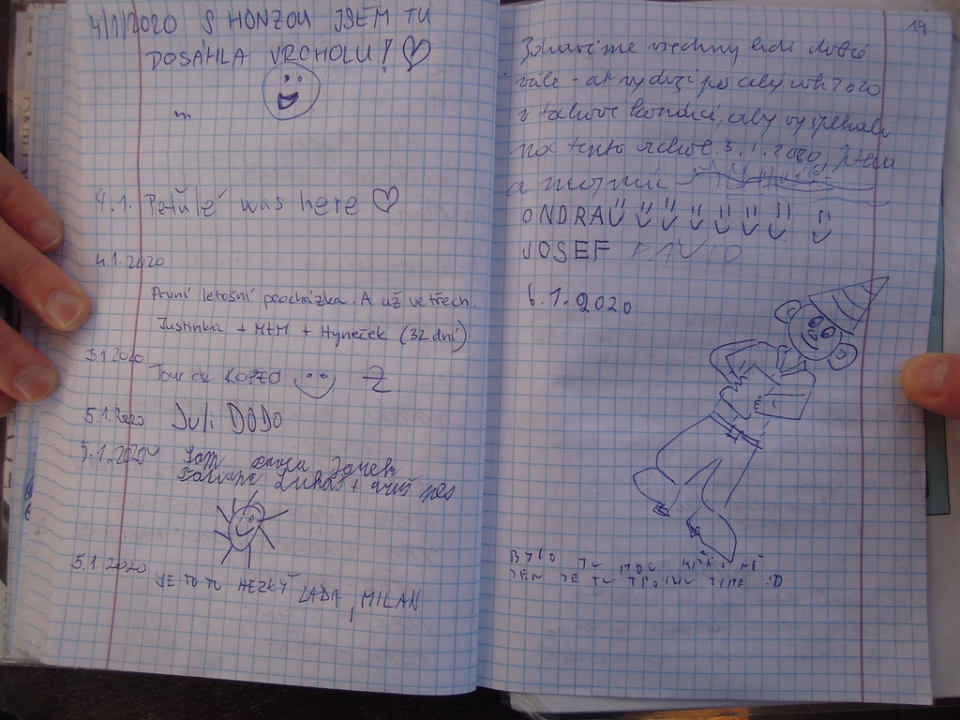 4/1/2020 S HONZOU JSEM TU
DOSÁHLA VRCHOLU!
m
4.1. Peťulé was here
4.1.2020
První letošní procházka. A už ve třech.
Justinka + M+M + Hyneček (32 dní)
5.1.2020
Tour de KOPEO Z
5.1.2020 Juli DODO
5.1.2020
Lukáš + náš pes
5.1.2020
JE TO TU HEZKÝ LADA, MILAN
19
Zdravíme všechny lidi dobré
vůle - ať vydrží po celý rok 2020
v takové kondici, aby vyšplhali
na tento vrchol 3.1.2020
a
ONDRA
JOSEF DAVID
6.1.2020
BYLO TU MOC KRÁSNĚ
JEN JE TU TROCHU ZIMA :D